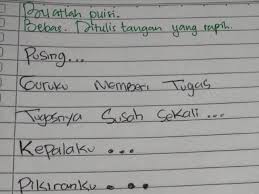 Buatlah puisi.
Bebas. Ditulis tangan yang rapih.
Pusing...
Guruku Memberi Tugas
Tugasnya Susah Sekali...
Kepalaku...
Pikiranku...